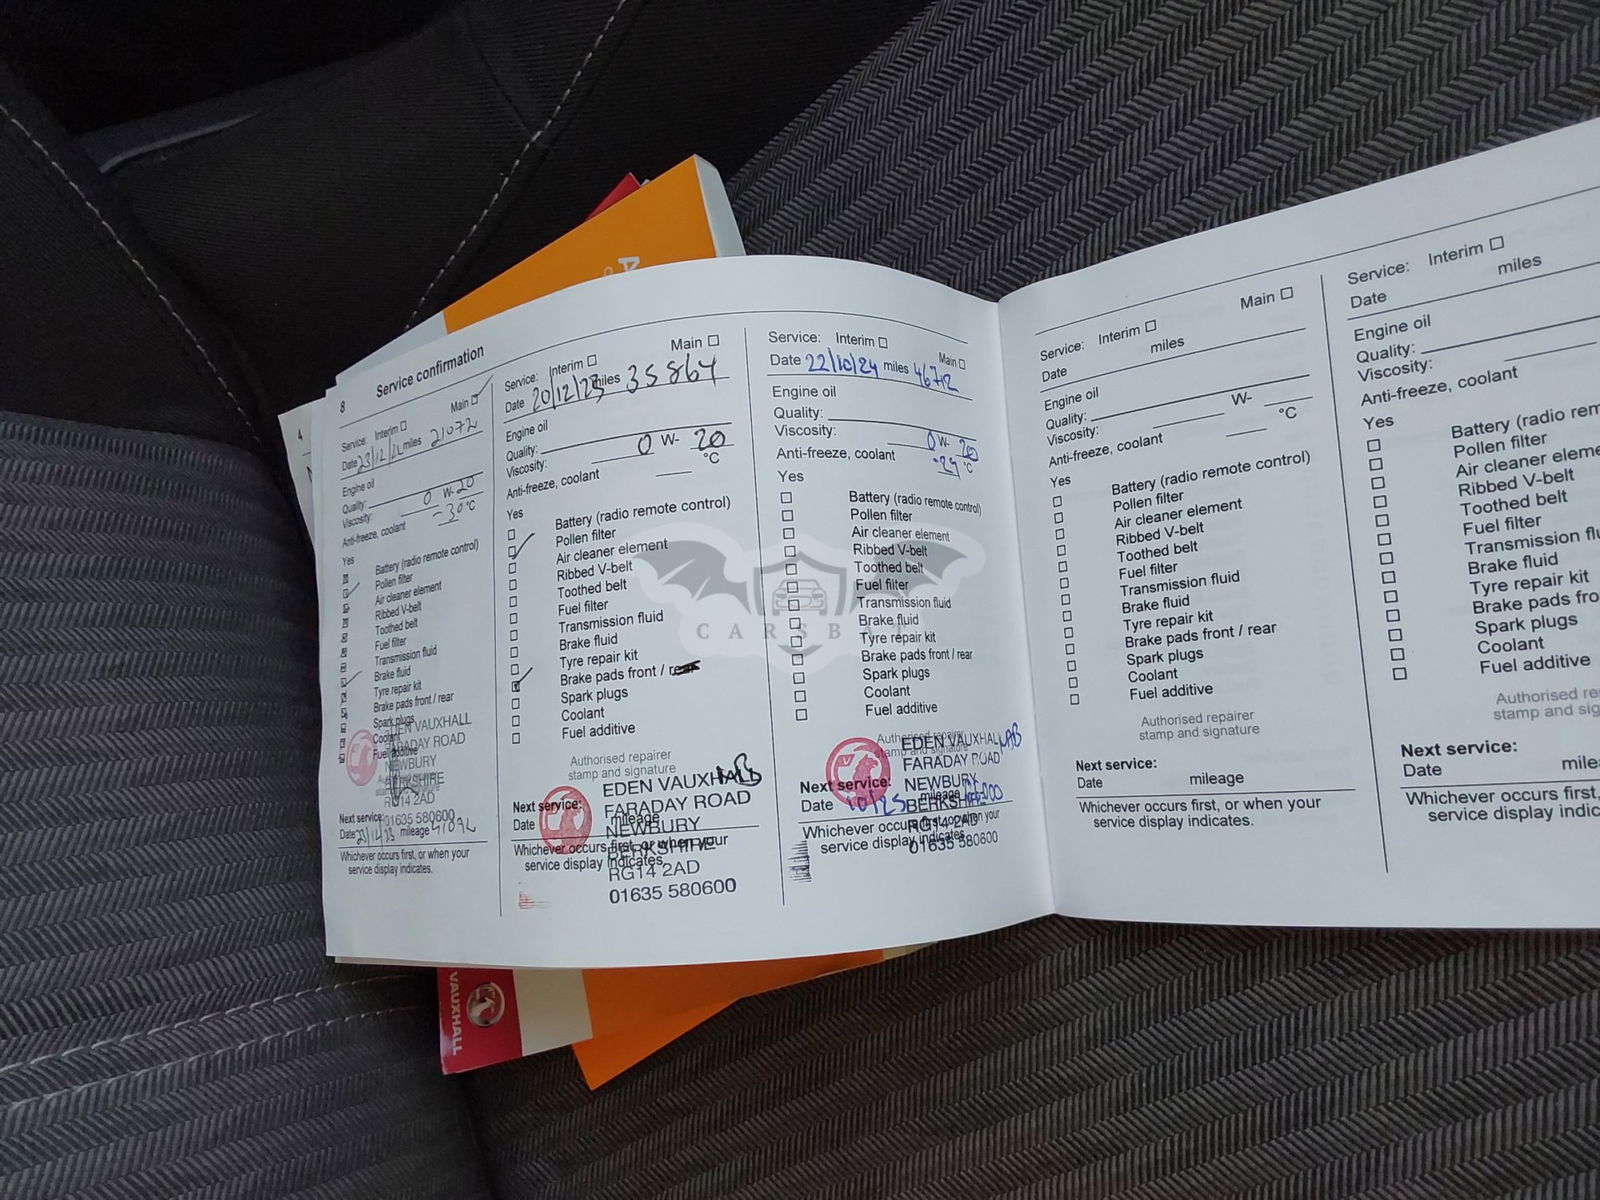 8 Service confirmation
Service: Interim
Main
Date 23/12/ miles 21072
Engine oil
Quality:
Viscosity: 0 W- 20
Anti-freeze, coolant -30 °C
Yes
Battery (radio remote control)
Pollen filter
Air cleaner element
Ribbed V-belt
Toothed belt
Fuel filter
Transmission fluid
Brake fluid
Tyre repair kit
Brake pads front / rear
Spark plugs
Coolant
Fuel additive
EDEN VAUXHALL
FARADAY ROAD
NEWBURY
BERKSHIRE
RG14 2AD
01635 580600
Next service:
Date mileage
Whichever occurs first, or when your
service display indicates.
Service: Interim
Main
Date 20/12/23 miles 35864
Engine oil
Quality:
Viscosity: 0 W- 20
Anti-freeze, coolant °C
Yes
Battery (radio remote control)
Pollen filter
Air cleaner element
Ribbed V-belt
Toothed belt
Fuel filter
Transmission fluid
Brake fluid
Tyre repair kit
Brake pads front /
Spark plugs
Coolant
Fuel additive
Authorised repairer
stamp and signature
EDEN VAUXHALL
FARADAY ROAD
NEWBURY
BERKSHIRE
RG14 2AD
01635 580600
Next service:
Date mileage
Whichever occurs first, or when your
service display indicates.
Service: Interim
Main
Date 22/10/24 miles 46712
Engine oil
Quality:
Viscosity: 0 W- 20
Anti-freeze, coolant -29 °C
Yes
Battery (radio remote control)
Pollen filter
Air cleaner element
Ribbed V-belt
Toothed belt
Fuel filter
Transmission fluid
Brake fluid
Tyre repair kit
Brake pads front / rear
Spark plugs
Coolant
Fuel additive
Authorised repairer
stamp and signature
EDEN VAUXHALL
FARADAY ROAD
NEWBURY
BERKSHIRE
RG14 2AD
01635 580600
Next service:
Date 10/25 mileage
Whichever occurs first, or when your
service display indicates.
Service: Interim
Main
Date miles
Engine oil
Quality:
Viscosity: W-
Anti-freeze, coolant °C
Yes
Battery (radio remote control)
Pollen filter
Air cleaner element
Ribbed V-belt
Toothed belt
Fuel filter
Transmission fluid
Brake fluid
Tyre repair kit
Brake pads front / rear
Spark plugs
Coolant
Fuel additive
Authorised repairer
stamp and signature
Next service:
Date mileage
Whichever occurs first, or when your
service display indicates.
Service: Interim
Date miles
Engine oil
Quality:
Viscosity:
Anti-freeze, coolant
Yes
Battery (radio rem
Pollen filter
Air cleaner eleme
Ribbed V-belt
Toothed belt
Fuel filter
Transmission flu
Brake fluid
Tyre repair kit
Brake pads fro
Spark plugs
Coolant
Fuel additive
Authorised re
stamp and sig
Next service:
Date mile
Whichever occurs first,
service display indic
CARSBAT
VAUXHALL